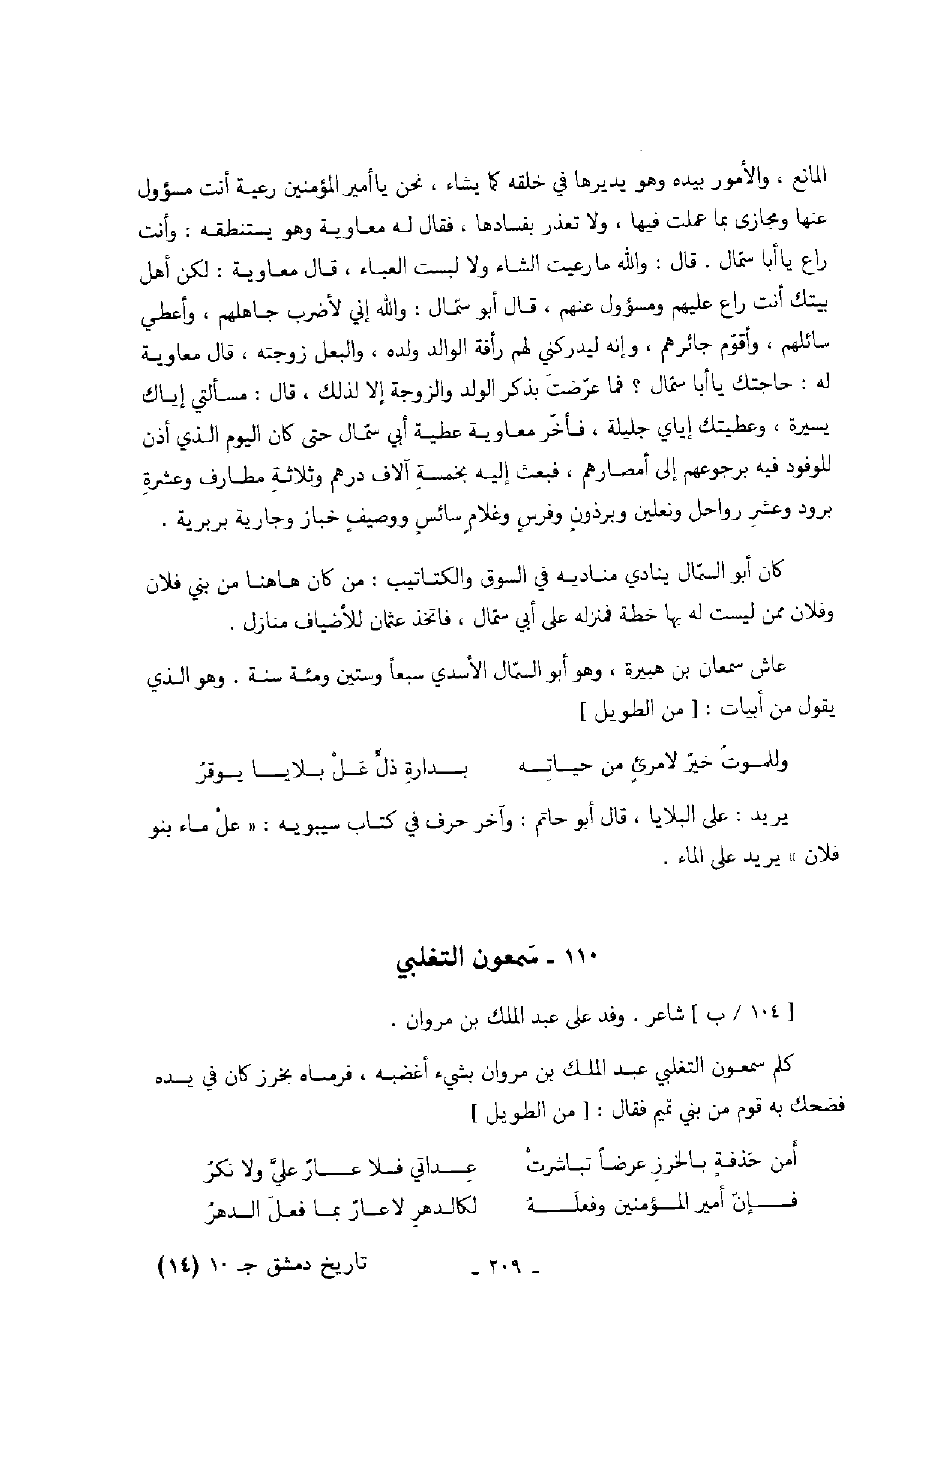 المانع ، والأمور بيده وهو يديرها في خلقه كما يشاء ، نحن ياأمير المؤمنين رعية أنت مسؤول
عنها ومجازى بما عملت فيها ، ولا تعذر بفسادها ، فقال له معاوية وهو يستنطقه : وأنت
راع ياأبا سمّال . قال : والله مارعيت الشاء ولا لبست العباء ، قال معاوية : لكن أهل
بيتك أنت راع عليهم ومسؤول عنهم ، قال أبو سمّال : والله إني لأضرب جاهلهم ، وأعطي
سائلهم ، وأقوّم جائرهم ، وإنه ليدركني لهم رأفة الوالد ولده ، والبعل زوجته ، قال معاوية
له : حاجتك ياأبا سمّال ؟ فما عرّضتَ بذكر الولد والزوجة إلا لذلك ، قال : مسألتي إياك
يسيرة ، وعطيتك إياي جليلة ، فأخّر معاوية عطية أبي سمّال حتى كان اليوم الذي أذن
للوفود فيه برجوعهم إلى أمصارهم ، فبعث إليه بخمسةِ آلاف درهم وثلاثةِ مطارف وعشرةِ
برود وعشرِ رواحل ونعلين وبرذونٍ وفرسٍ وغلامٍ سائسٍ ووصيفٍ خباز وجارية بربرية .
كان أبو السمّال ينادي مناديه في السوق والكتاتيب : من كان هاهنا من بني فلان
وفلان ممن ليست له بها خطة فمنزله على أبي سمّال ، فاتخذ عثمان للأضياف منازل .
عاش سمعان بن هبيرة ، وهو أبو السمّال الأسدي سبعاً وستين ومئة سنة . وهو الذي
يقول من أبيات : [ من الطويل ]
وللموتُ خيرٌ لامرئٍ من حياتِه بدارةِ ذلٍّ عَلْ بلايا يوقرُ
يريد : على البلايا ، قال أبو حاتم : وآخر حرف في كتاب سيبويه : « علْ ماء بنو
فلان » يريد على الماء .
١١٠ - سَمعون التغلبي
[ ١٠٤ / ب ] شاعر . وفد على عبد الملك بن مروان .
كلم سمعون التغلبي عبد الملك بن مروان بشيء أغضبه ، فرماه بخرز كان في يده
فضحك به قوم من بني تميم فقال : [ من الطويل ]
أَمن خَذفةٍ بالخرزِ عرضاً تباشرتْ عِداتي فلا عارٌ عليَّ ولا نكرُ
فإنّ أمير المؤمنين وفعلَه لكالدهرِ لاعارٌ بما فعلَ الدهرُ
- ٢٠٩ - تاريخ دمشق جـ ١٠ (١٤)